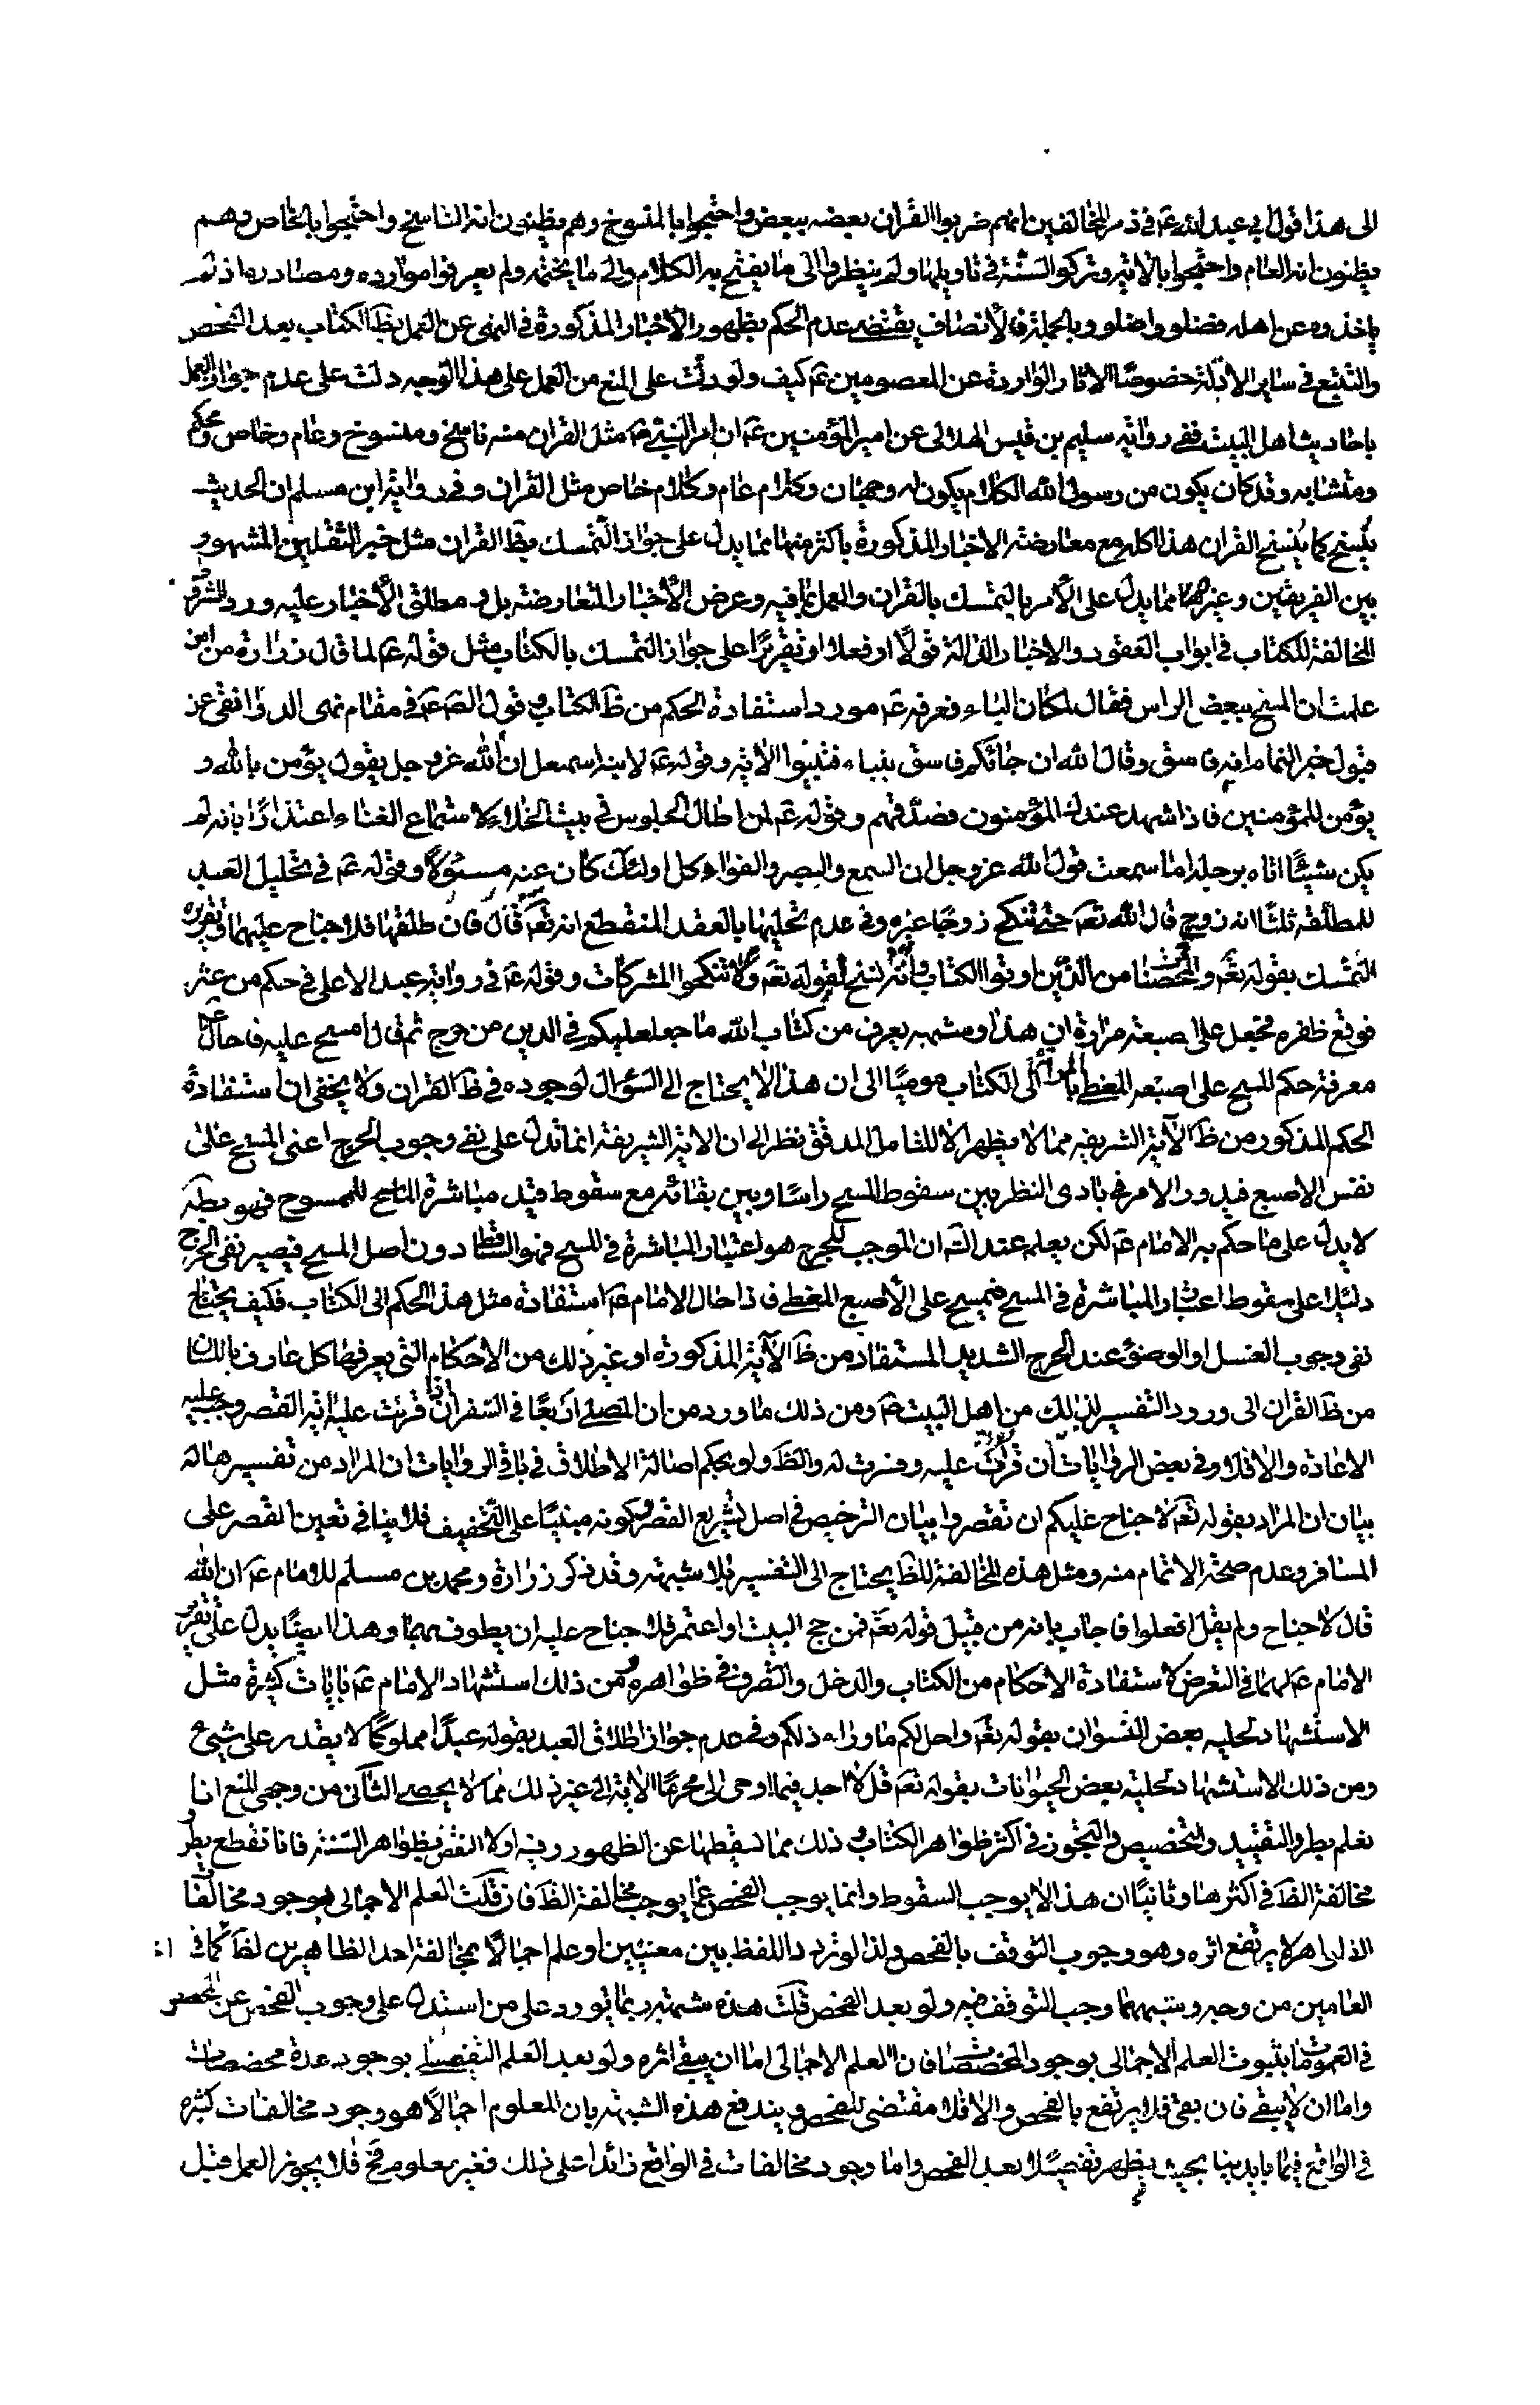 الى هذا قول ابي عبد الله عم في ذم المخالفين انهم ضربوا القران بعضه ببعض واحتجوا بالمنسوخ وهم يظنون انه الناسخ واحتجوا بالخاص وهم
يظنون انه العام واحتجوا بالاية وتركوا السنة في تاويلها ولم ينظروا الى ما يفتح به الكلام والى ما يختمه ولم يعرفوا موارده ومصادره اذ لم
ياخذوه عن اهله فضلوا واضلوا وبالجملة فالانصاف يقتضي عدم الحكم بظهور الاخبار المذكورة في النهي عن العمل بظ الكتاب بعد الفحص
والتتبع في ساير الادلة خصوصا الاثار الواردة عن المعصومين عم كيف ولو دلت على المنع من العمل على هذا الوجه دلت على عدم جواز العمل
باحاديث اهل البيت ففي رواية سليم بن قيس الهلالى عن امير المؤمنين عم ان امر النبي ص مثل القران منه ناسخ ومنسوخ وعام وخاص ومحكم
ومتشابه وقد كان يكون من رسول الله الكلام يكون له وجهان وكلام عام وكلام خاص مثل القران وفي رواية ابن مسلم ان الحديث
ينسخ كما ينسخ القران هذا كله مع معارضة الاخبار المذكورة باكثر منها مما يدل على جواز التمسك بظ القران مثل خبر الثقلين المشهور
بين الفريقين وغيرهما مما يدل على الامر بالتمسك بالقران والعمل بما فيه وعرض الاخبار المتعارضة بل ومطلق الاخبار عليه ورد الشروط
المخالفة للكتاب في ابواب العقود والاخبار الدالة قولا او فعلا او تقريرا على جواز التمسك بالكتاب مثل قوله عم لما قال زرارة من اين
علمت ان المسح ببعض الراس فقال لمكان الباء فعرفه عم مورد استفادة الحكم من ظ الكتاب وقول الصم عم في مقام نهى الدوانقي عن
قبول خبر النمام انه فاسق وقال الله ان جائكم فاسق بنباء فتبينوا الاية وقوله عم لابنه اسمعيل ان الله عز وجل يقول يؤمن بالله و
يؤمن للمؤمنين فاذا شهد عندك المؤمنون فصدقهم وقوله عم لمن اطال الجلوس في بيت الخلاء لاستماع الغناء اعتذارا بانه لم
يكن شيئا اتاه برجله اما سمعت قول الله عز وجل ان السمع والبصر والفواد كل اولئك كان عنه مسئولا وقوله عم في تحليل العبد
للمطلقة ثلثا انه زوج قال الله تعم حتى تنكح زوجا غيره وفي عدم تحليلها بالعقد المنقطع انه تعم قال فان طلقها فلا جناح عليهما وتقريره
التمسك بقوله تعم والمحصنات من الذين اوتوا الكتاب وانه نسخ بقوله تعم ولا تنكحوا المشركات وقوله عم في رواية عبد الاعلى في حكم من عثر
فوقع ظفره فجعل على اصبعه مرارة ان هذا وشبهه يعرف من كتاب الله ما جعل عليكم في الدين من حرج ثم قال امسح عليه فاحال عم
معرفة حكم المسح على اصبعه المغطى بالمرارة الى الكتاب مومئا الى ان هذا لا يحتاج الى السؤال لوجوده في ظ القران ولا يخفى ان استفادة
الحكم المذكور من ظ الاية الشريفة مما لا يظهر الا للمتامل المدقق نظرا الى ان الاية الشريفة انما تدل على نفي وجوب الحرج اعنى المسح على
نفس الاصبع فيدور الامر في بادى النظر بين سقوط المسح راسا وبين بقائه مع سقوط قيد مباشرة الماسح للممسوح فهو بظه
لا يدل على ما حكم به الامام عم لكن يعلم عند التم ان الموجب للحرج هو اعتبار المباشرة في المسح فهو الساقط دون اصل المسح فيصير نفى الحرج
دليلا على سقوط اعتبار المباشرة في المسح فيمسح على الاصبع المغطى فاذا احال الامام عم استفادة مثل هذا الحكم الى الكتاب فكيف يحتاج
نفى وجوب الغسل او الوضوء عند الحرج الشديد المستفاد من ظ الاية المذكورة او غير ذلك من الاحكام التى يعرفها كل عارف باللسان
من ظ القران الى ورود التفسير لذلك من اهل البيت عم ومن ذلك ما ورد من ان المصلي اربعا في السفر ان قرئت عليه اية القصر وجب عليه
الاعادة والا فلا وفي بعض الروايات ان قرئت عليه وفسرت له والظ ولو بحكم اصالة الاطلاق في باقى الروايات ان المراد من تفسيرها له
بيان ان المراد بقوله تعم لا جناح عليكم ان تقصروا بيان الترخيص في اصل تشريع القصر وكونه مبنيا على التخفيف فلا ينافي تعين القصر على
المسافر وعدم صحة الاتمام منه ومثل هذه المخالفة للظ يحتاج الى التفسير بلا شبهة وقد ذكر زرارة ومحمد بن مسلم للامام عم ان الله
قال لا جناح ولم يقل افعلوا فاجاب بانه من قبيل قوله تعم فمن حج البيت او اعتمر فلا جناح عليه ان يطوف بهما وهذا ايضا يدل على تقرير
الامام عم لهما في التعرض لاستفادة الاحكام من الكتاب والدخل والتصرف في ظواهره ومن ذلك استشهاد الامام عم بايات كثيرة مثل
الاستشهاد لحلية بعض النسوان بقوله تعم واحل لكم ما وراء ذلكم وفي عدم جواز طلاق العبد بقوله عبدا مملوكا لا يقدر على شيئ
ومن ذلك الاستشهاد لحلية بعض الحيوانات بقوله تعم قل لا اجد فيما اوحى الى محرما الاية الى غير ذلك مما لا يحصى الثانى من وجهى المنع انا
نعلم بطرو التقييد والتخصيص والتجوز في اكثر ظواهر الكتاب وذلك مما يسقطها عن الظهور وفيه اولا النقض بظواهر السنة فانا نقطع بطرو
مخالفة الظ في اكثرها وثانيا ان هذا لا يوجب السقوط وانما يوجب الفحص عما يوجب مخالفة الظ فان قلت العلم الاجمالى بوجود مخالفات
الظواهر لا يرتفع اثره وهو وجوب التوقف بالفحص ولذا لو تردد اللفظ بين معنيين او علم اجمالا بمخالفة احد الظاهرين لظ كما في
العامين من وجه وشبههما وجب التوقف فيه ولو بعد الفحص قلت هذه شبهة ربما تورد على من استدل على وجوب الفحص عن المخصص
في العمومات بثبوت العلم الاجمالى بوجود المخصصات فان العلم الاجمالى اما ان يبقى اثره ولو بعد العلم التفصيلى بوجود عدة مخصصات
واما ان لا يبقى فان بقى فلا يرتفع بالفحص والا فلا مقتضى للفحص ويندفع هذه الشبهة بان المعلوم اجمالا هو وجود مخالفات كثيرة
في الواقع فيما بايدينا بحيث يظهر تفصيلا بعد الفحص واما وجود مخالفات في الواقع زائدا على ذلك فغير معلوم فح فلا يجوز العمل قبل